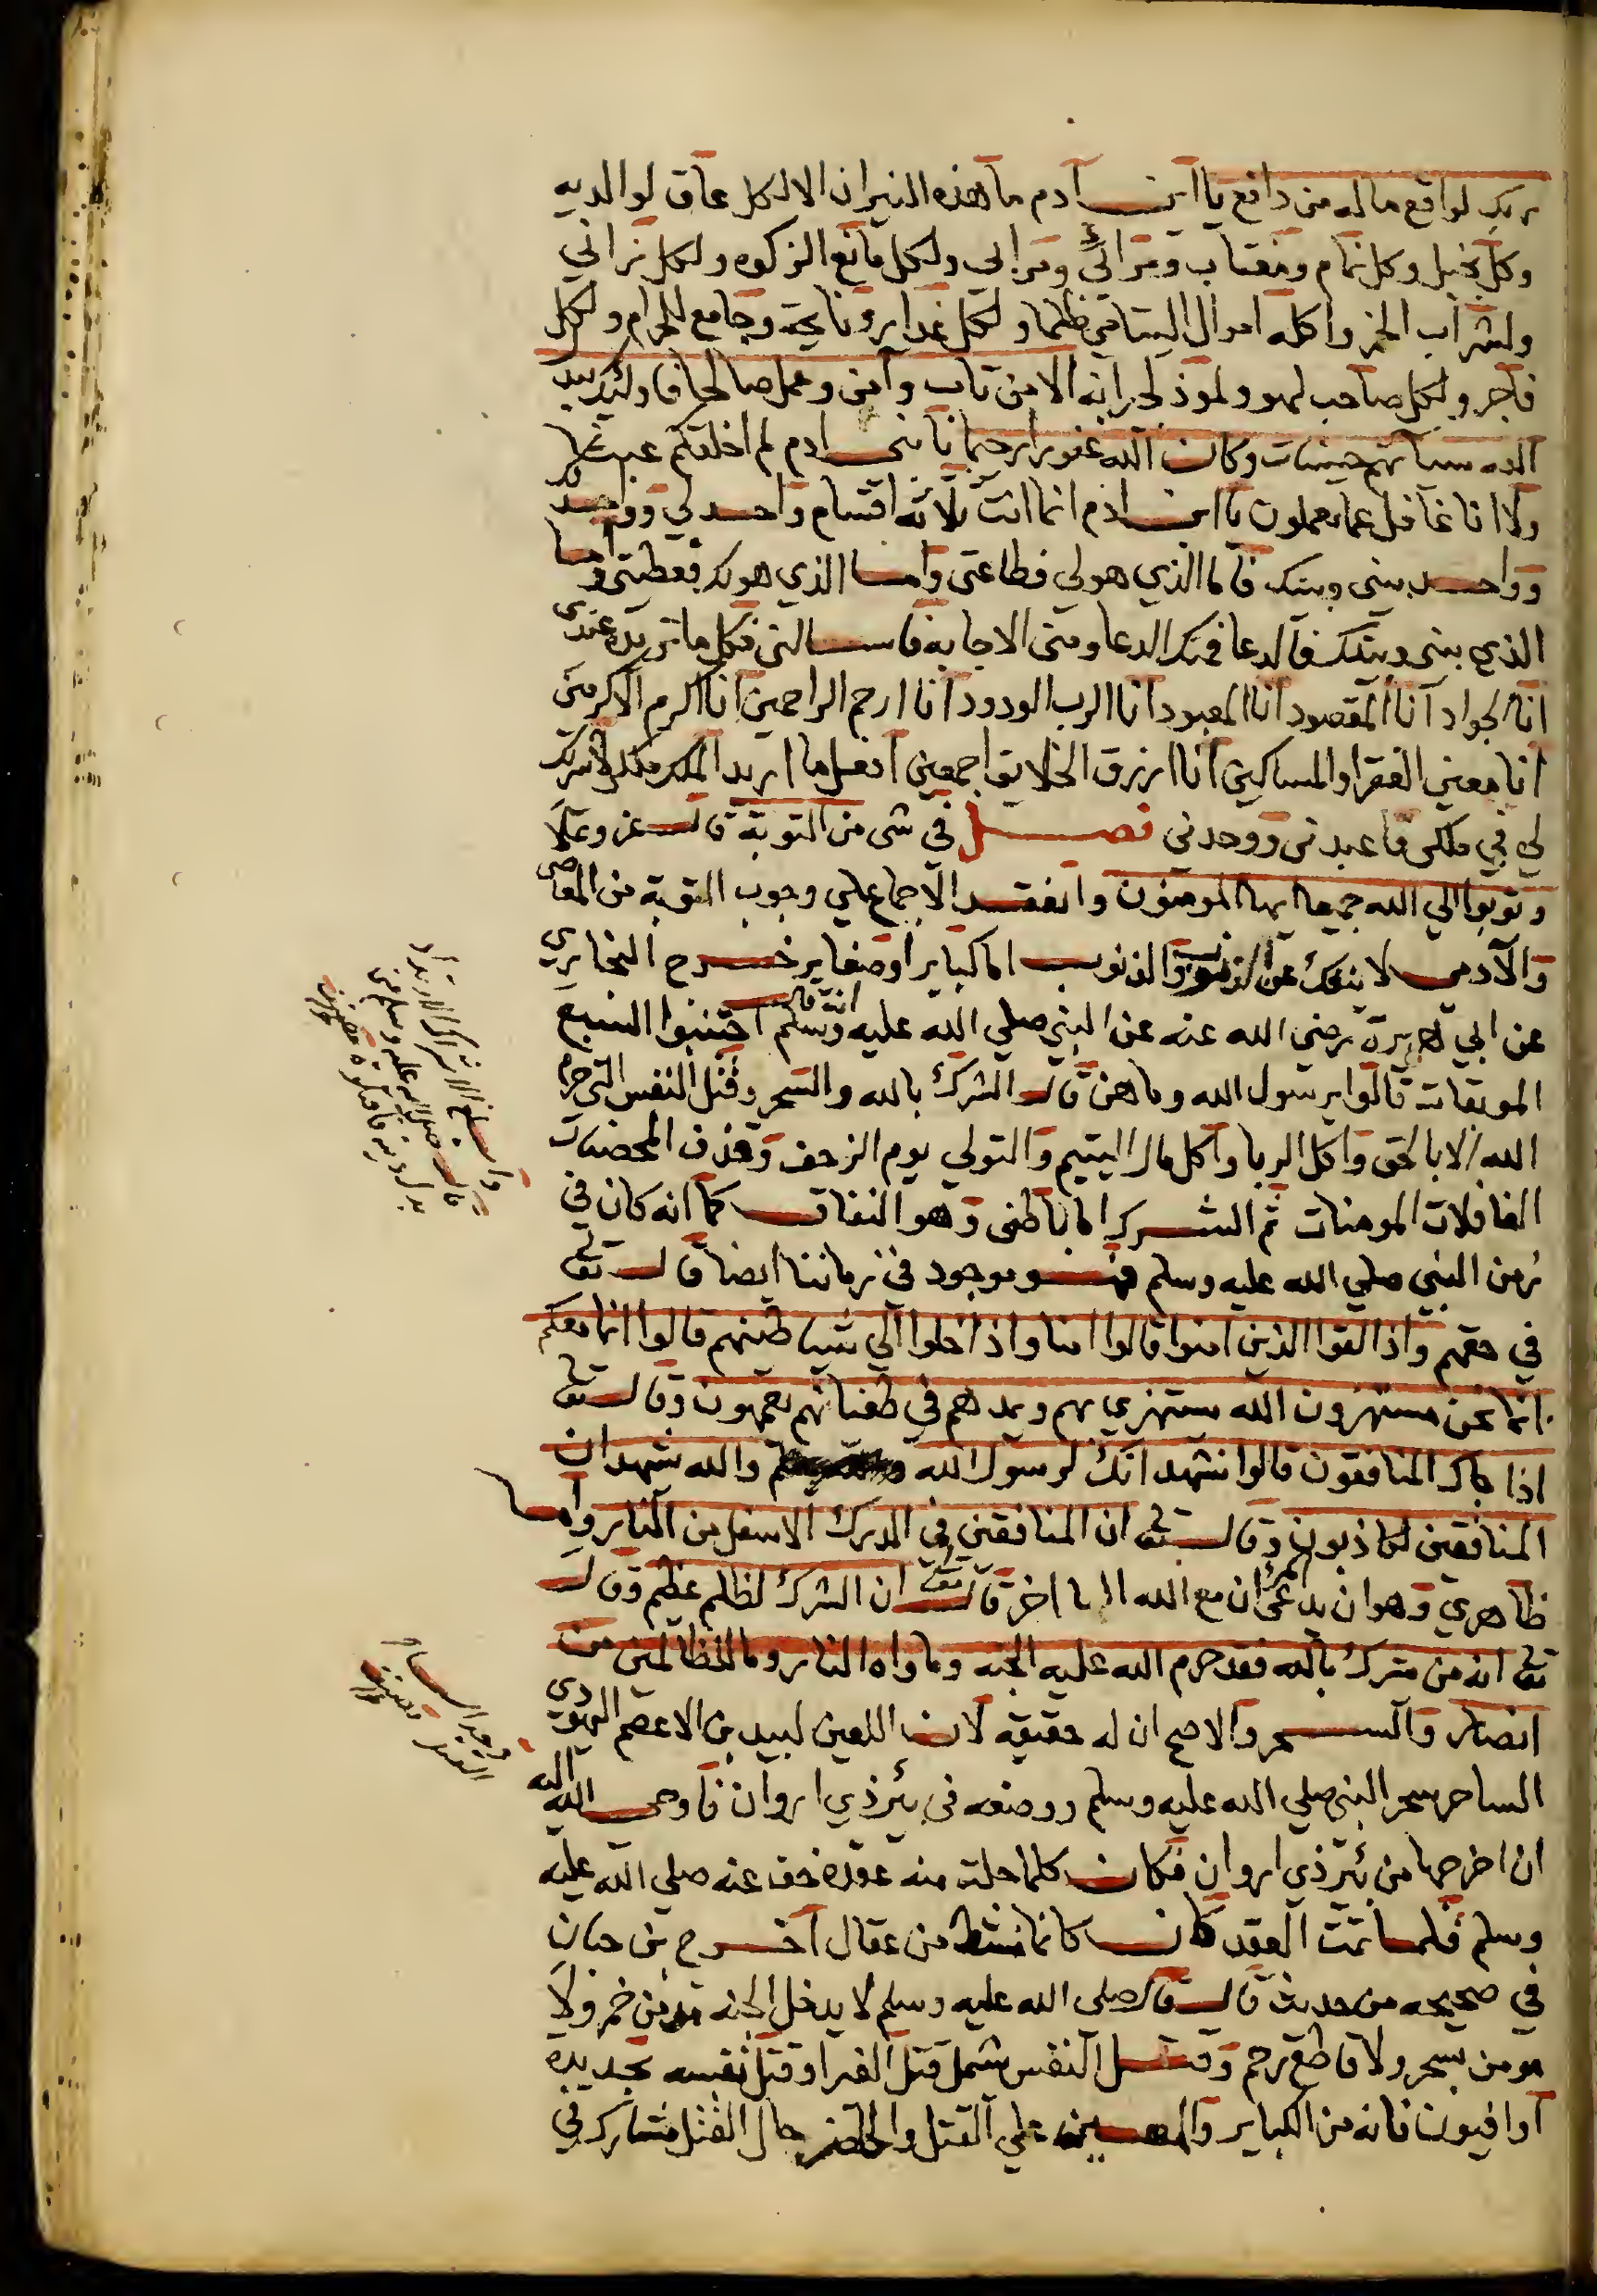 ربك لواقع ماله من دافع يا ابن آدم ما هذه النيران الا لكل عاق لوالديه
وكل بخيل وكل نمام ومغتاب ومرائي ومرابى ولكل مانع الزكوه ولكل زاني
ولشراب الخمر واكله اموال اليتامي ظلما ولكل غدا ير ونايحة وجامع للحرام ولكل
فاجر ولكل صاحب لهو ولموذ لجرانه الا من تاب وآمن وعمل صالحا فاوليك يبدل
الله سيآتهم حسنات وكان الله غفورا رحيما يا بنى ادم لم اخلقكم عبثا
ولا انا غافل عما تعملون يا ابن ادم انما انت ثلاثه اقسام واحد لي وواحد لك
وواحد بينى وبينك فاما الذي هولي فطاعتى واما الذي هو لك فعطيتى واما
الذي بينى وبينك فالدعا فمنك الدعا ومنى الاجابه فاسالنى فكل ما تريده عندى
انا الجواد آنا المقصود آنا المعبود آنا الرب الودود آنا ارحم الراحمين انا اكرم الاكرمين
انا معين الفقرا والمساكين آنا ارزق الخلايق اجمعين افعل ما اريد الملك ملكى لا شريك
لي في ملكى فاعبدنى ووحدنى فصل في شى من التوبة قال عز وعلا
وتوبوا الي الله جميعا ايها المومنون وانعقد الاجماع علي وجوب التوبة من المعاصى
والآدمي لا ينفك عن الذنوب والذنوب اما كباير او صغاير خرج البخاري
عن ابي هريرة رضى الله عنه عن النبي صلي الله عليه وسلم انه قال اجتنبوا السبع
الموبقات قالوا يرسول الله وما هن قال الشرك بالله والسحر وقتل النفس التى حرم
الله الا بالحق واكل الربا واكل مال اليتيم والتولي يوم الزحف وقذف المحصنات
الغافلات المومنات ثم الشرك اما باطنى وهو النفاق كما انه كان في
زمن النبي صلي الله عليه وسلم فهو موجود في زماننا ايضا قال تعالى
في حقهم واذا لقوا الذين امنوا قالوا امنا واذا خلوا الي شياطينهم قالوا انا معكم
انما نحن مستهزون الله يستهزي بهم ويمدهم في طغيانهم يعمهون وقال تعالى
اذا جاك المنافقون قالوا نشهد انك لرسول الله والله يشهد ان
المنافقين لكاذبون وقال تعالى ان المنافقين في الدرك الاسفل من النار واما
ظاهري وهو ان يدعى ان مع الله الاها اخر قال تعالى ان الشرك لظلم عظيم وقال
تعالى انه من يشرك بالله فقد حرم الله عليه الجنه وماواه النار وما للظالمين من
انصار والسحر والاصح ان له حقيقه لان اللعين لبيد بن الاعصم اليهودي
الساحر سحر النبي صلي الله عليه وسلم ووضعه في بئر ذي اروان فاوحى الله اليه
ان اخرجها من بئر ذي اروان فكان كلما حلت منه عقده خف عنه صلي الله عليه
وسلم فلما تمت العقد كان كانما نشط من عقال اخرج بن حبان
في صحيحه من حديث قال قال صلى الله عليه وسلم لا يدخل الجنه مدمن خمر ولا
مومن بسحر ولا قاطع رحم وقتل النفس يشمل قتل الغير او قتل نفسه بحديده
اوافيون فانه من الكباير والمعين علي القتل والحاضر حال القتل مشارك في